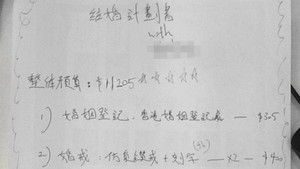 結婚計劃書
with
整体預算：$11205
1) 婚姻登記：香港婚姻登記處 — $305
2) 婚戒：仿真鑽戒 + 刻字 — x2 — $400